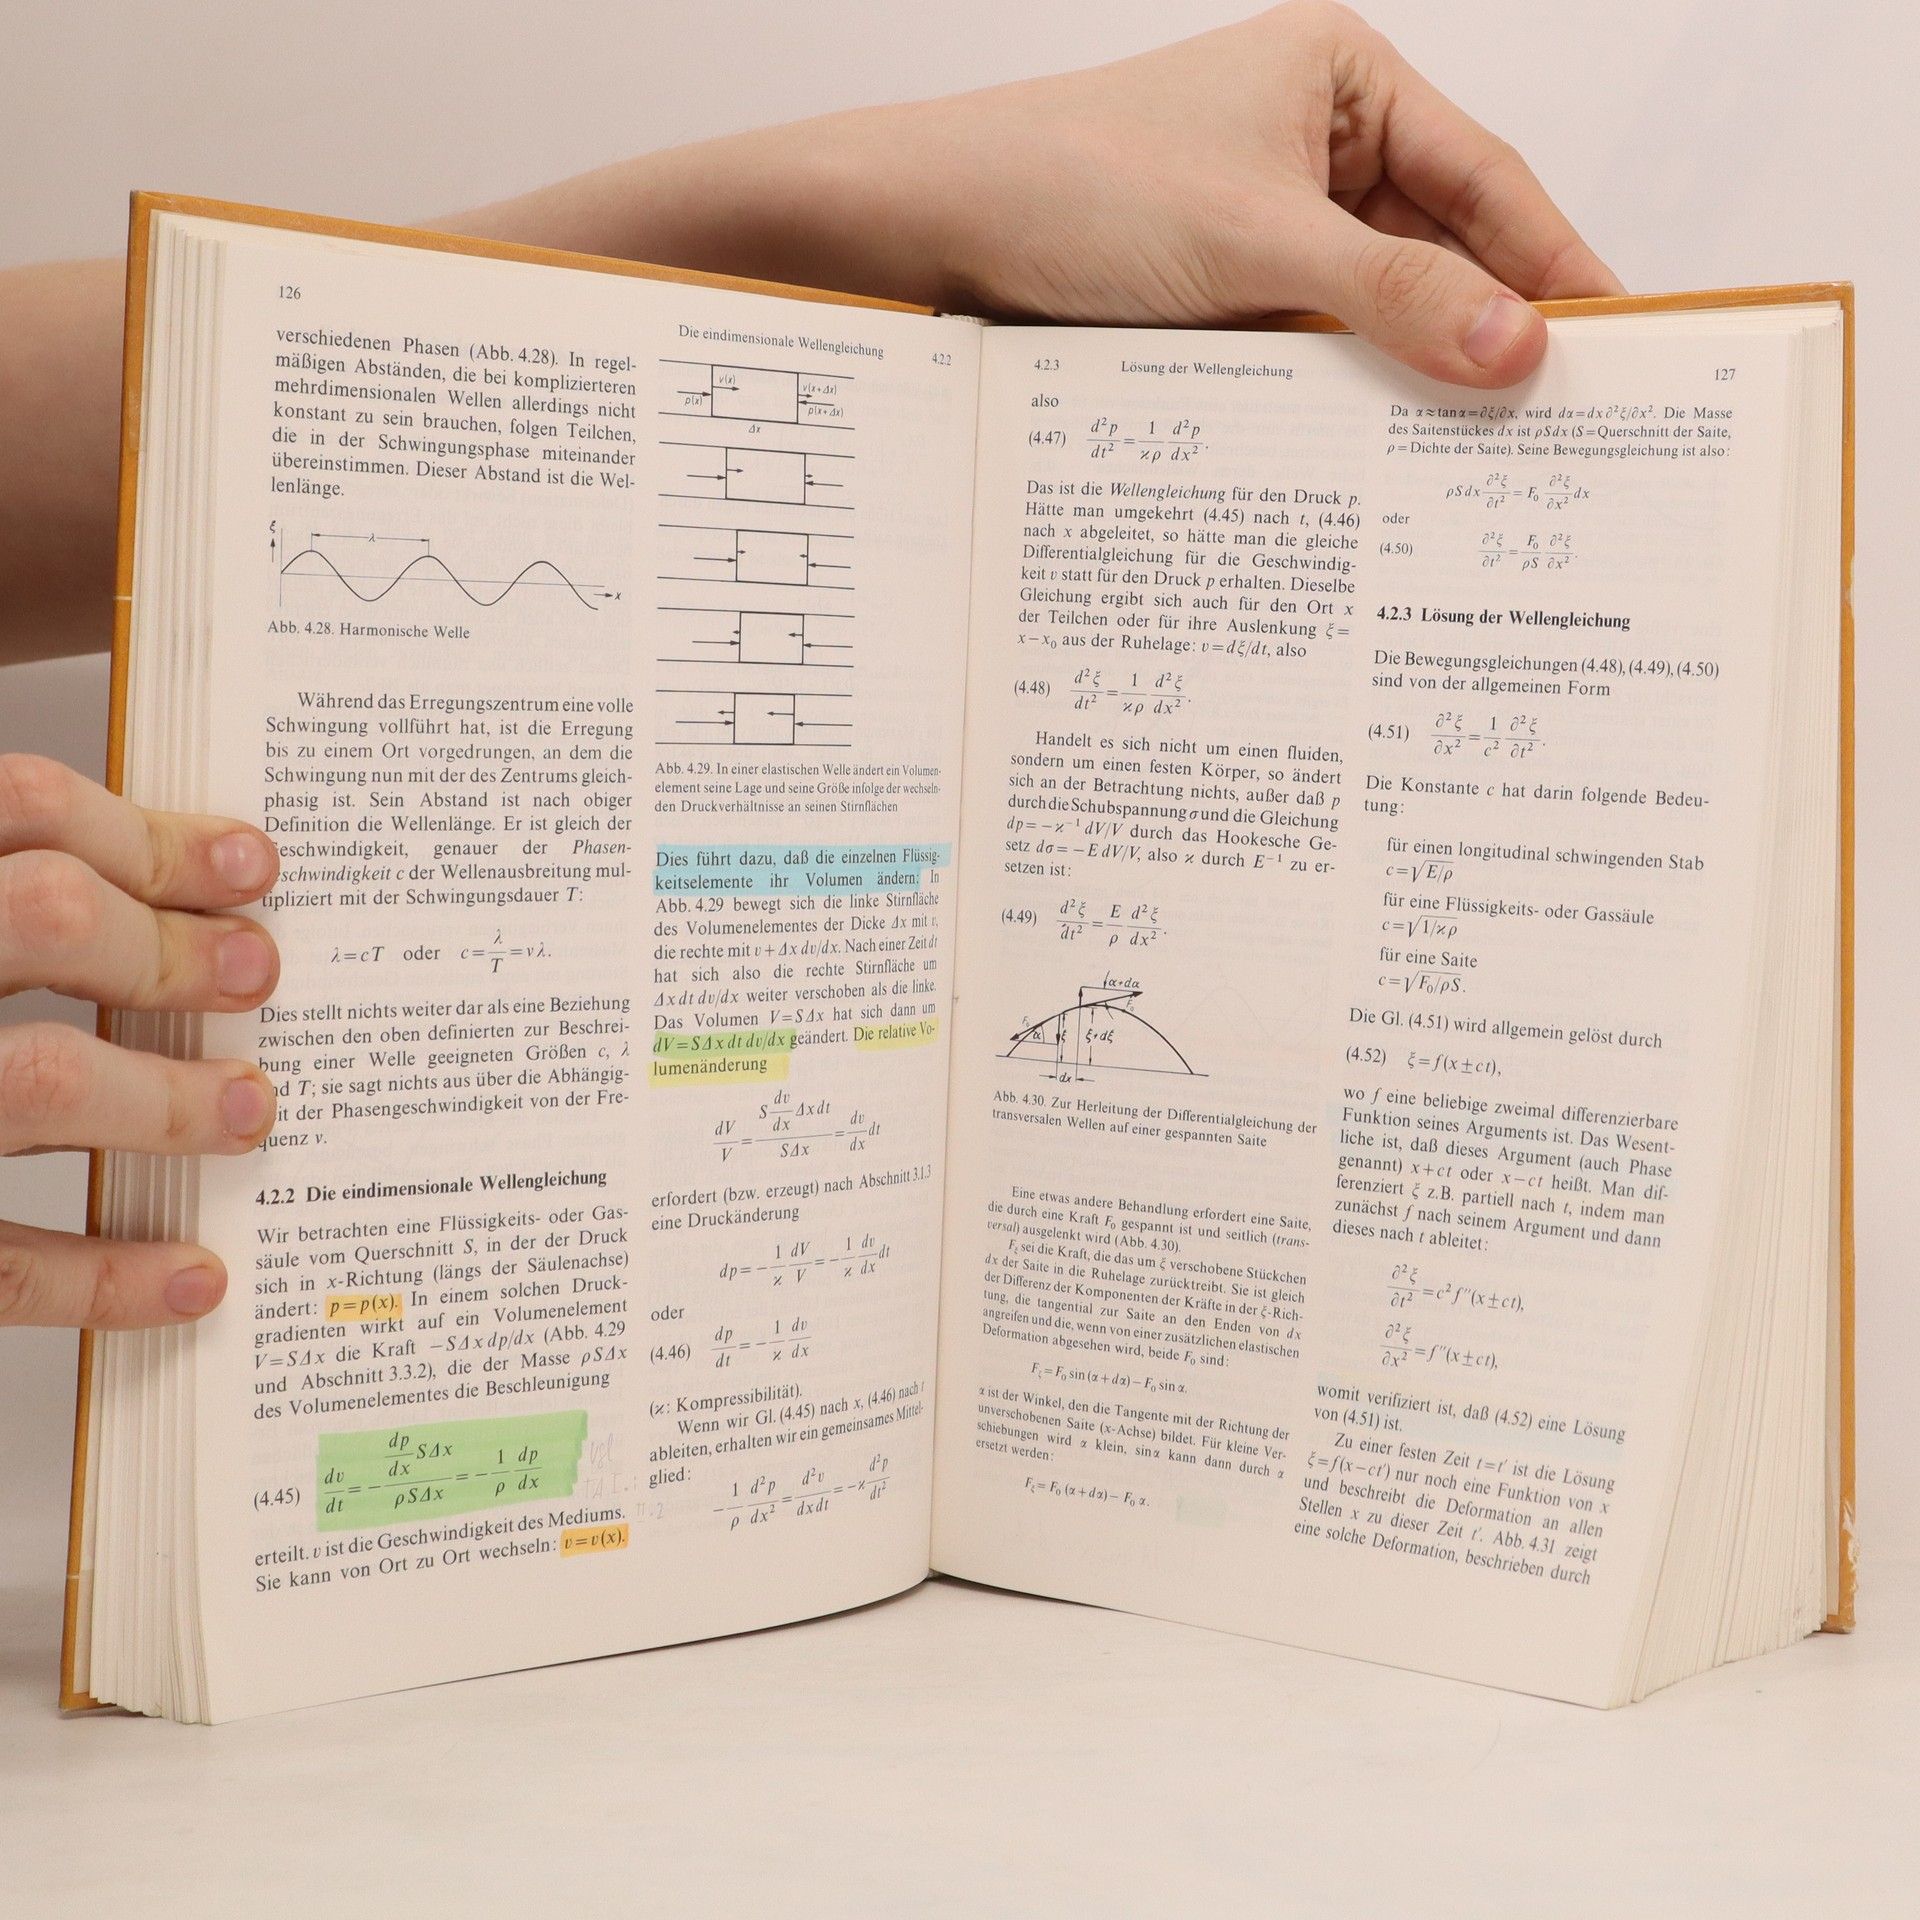 126
verschiedenen Phasen (Abb. 4.28). In regel-
mäßigen Abständen, die bei komplizierteren
mehrdimensionalen Wellen allerdings nicht
konstant zu sein brauchen, folgen Teilchen,
die in der Schwingungsphase miteinander
übereinstimmen. Dieser Abstand ist die Wel-
lenlänge.
ξ
λ
x
Abb. 4.28. Harmonische Welle
Während das Erregungszentrum eine volle
Schwingung vollführt hat, ist die Erregung
bis zu einem Ort vorgedrungen, an dem die
Schwingung nun mit der des Zentrums gleich-
phasig ist. Sein Abstand ist nach obiger
Definition die Wellenlänge. Er ist gleich der
eschwindigkeit, genauer der Phasen-
schwindigkeit c der Wellenausbreitung mul-
tipliziert mit der Schwingungsdauer T:
λ=cT oder c=λ/T=νλ.
Dies stellt nichts weiter dar als eine Beziehung
zwischen den oben definierten zur Beschrei-
bung einer Welle geeigneten Größen c, λ
nd T; sie sagt nichts aus über die Abhängig-
it der Phasengeschwindigkeit von der Fre-
quenz ν.
4.2.2 Die eindimensionale Wellengleichung
Wir betrachten eine Flüssigkeits- oder Gas-
säule vom Querschnitt S, in der der Druck
sich in x-Richtung (längs der Säulenachse)
ändert: p=p(x). In einem solchen Druck-
gradienten wirkt auf ein Volumenelement
V=SΔx die Kraft −SΔx dp/dx (Abb. 4.29
und Abschnitt 3.3.2), die der Masse ρSΔx
des Volumenelementes die Beschleunigung
(4.45) dv/dt = −(dp/dx SΔx)/(ρSΔx) = −1/ρ dp/dx
erteilt. v ist die Geschwindigkeit des Mediums.
Sie kann von Ort zu Ort wechseln: v=v(x).
Die eindimensionale Wellengleichung 4.2.2
v(x) v(x+Δx)
p(x) p(x+Δx)
Δx
Abb. 4.29. In einer elastischen Welle ändert ein Volumen-
element seine Lage und seine Größe infolge der wechseln-
den Druckverhältnisse an seinen Stirnflächen
Dies führt dazu, daß die einzelnen Flüssig-
keitselemente ihr Volumen ändern: In
Abb. 4.29 bewegt sich die linke Stirnfläche
des Volumenelementes der Dicke Δx mit v,
die rechte mit v+Δx dv/dx. Nach einer Zeit dt
hat sich also die rechte Stirnfläche um
Δx dt dv/dx weiter verschoben als die linke.
Das Volumen V=SΔx hat sich dann um
dV=SΔx dt dv/dx geändert. Die relative Vo-
lumenänderung
dV/V = (S dv/dx Δx dt)/(SΔx) = dv/dx dt
erfordert (bzw. erzeugt) nach Abschnitt 3.1.3
eine Druckänderung
dp = −1/ϰ dV/V = −1/ϰ dv/dx dt
oder
(4.46) dp/dt = −1/ϰ dv/dx
(ϰ: Kompressibilität).
Wenn wir Gl. (4.45) nach x, (4.46) nach t
ableiten, erhalten wir ein gemeinsames Mittel-
glied:
−1/ρ d²p/dx² = d²v/dxdt = −ϰ d²p/dt²
4.2.3 Lösung der Wellengleichung 127
also
(4.47) d²p/dt² = 1/ϰρ d²p/dx².
Das ist die Wellengleichung für den Druck p.
Hätte man umgekehrt (4.45) nach t, (4.46)
nach x abgeleitet, so hätte man die gleiche
Differentialgleichung für die Geschwindig-
keit v statt für den Druck p erhalten. Dieselbe
Gleichung ergibt sich auch für den Ort x
der Teilchen oder für ihre Auslenkung ξ=
x−x₀ aus der Ruhelage: v=dξ/dt, also
(4.48) d²ξ/dt² = 1/ϰρ d²ξ/dx².
Handelt es sich nicht um einen fluiden,
sondern um einen festen Körper, so ändert
sich an der Betrachtung nichts, außer daß p
durch die Schubspannung σ und die Gleichung
dp=−ϰ⁻¹ dV/V durch das Hookesche Ge-
setz dσ=−E dV/V, also ϰ durch E⁻¹ zu er-
setzen ist:
(4.49) d²ξ/dt² = E/ρ d²ξ/dx².
α+dα
F₀
F₀
α
ξ
ξ+dξ
dx
Abb. 4.30. Zur Herleitung der Differentialgleichung der
transversalen Wellen auf einer gespannten Saite
Eine etwas andere Behandlung erfordert eine Saite,
die durch eine Kraft F₀ gespannt ist und seitlich (trans-
versal) ausgelenkt wird (Abb. 4.30).
Fξ sei die Kraft, die das um ξ verschobene Stückchen
dx der Saite in die Ruhelage zurücktreibt. Sie ist gleich
der Differenz der Komponenten der Kräfte in der ξ-Rich-
tung, die tangential zur Saite an den Enden von dx
angreifen und die, wenn von einer zusätzlichen elastischen
Deformation abgesehen wird, beide F₀ sind:
Fξ=F₀ sin (α+dα)−F₀ sin α.
α ist der Winkel, den die Tangente mit der Richtung der
unverschobenen Saite (x-Achse) bildet. Für kleine Ver-
schiebungen wird α klein, sin α kann dann durch α
ersetzt werden:
Fξ=F₀ (α+dα)−F₀ α.
Da α≈tan α=∂ξ/∂x, wird dα=dx ∂²ξ/∂x². Die Masse
des Saitenstückes dx ist ρS dx (S=Querschnitt der Saite,
ρ=Dichte der Saite). Seine Bewegungsgleichung ist also:
ρS dx ∂²ξ/∂t² = F₀ ∂²ξ/∂x² dx
oder
(4.50) ∂²ξ/∂t² = F₀/ρS ∂²ξ/∂x².
4.2.3 Lösung der Wellengleichung
Die Bewegungsgleichungen (4.48), (4.49), (4.50)
sind von der allgemeinen Form
(4.51) ∂²ξ/∂x² = 1/c² ∂²ξ/∂t².
Die Konstante c hat darin folgende Bedeu-
tung:
für einen longitudinal schwingenden Stab
c=√E/ρ
für eine Flüssigkeits- oder Gassäule
c=√1/ϰρ
für eine Saite
c=√F₀/ρS.
Die Gl. (4.51) wird allgemein gelöst durch
(4.52) ξ=f(x±ct),
wo f eine beliebige zweimal differenzierbare
Funktion seines Arguments ist. Das Wesent-
liche ist, daß dieses Argument (auch Phase
genannt) x+ct oder x−ct heißt. Man dif-
ferenziert ξ z.B. partiell nach t, indem man
zunächst f nach seinem Argument und dann
dieses nach t ableitet:
∂²ξ/∂t² = c² f″(x±ct),
∂²ξ/∂x² = f″(x±ct),
womit verifiziert ist, daß (4.52) eine Lösung
von (4.51) ist.
Zu einer festen Zeit t=t′ ist die Lösung
ξ=f(x−ct′) nur noch eine Funktion von x
und beschreibt die Deformation an allen
Stellen x zu dieser Zeit t′. Abb. 4.31 zeigt
eine solche Deformation, beschrieben durch